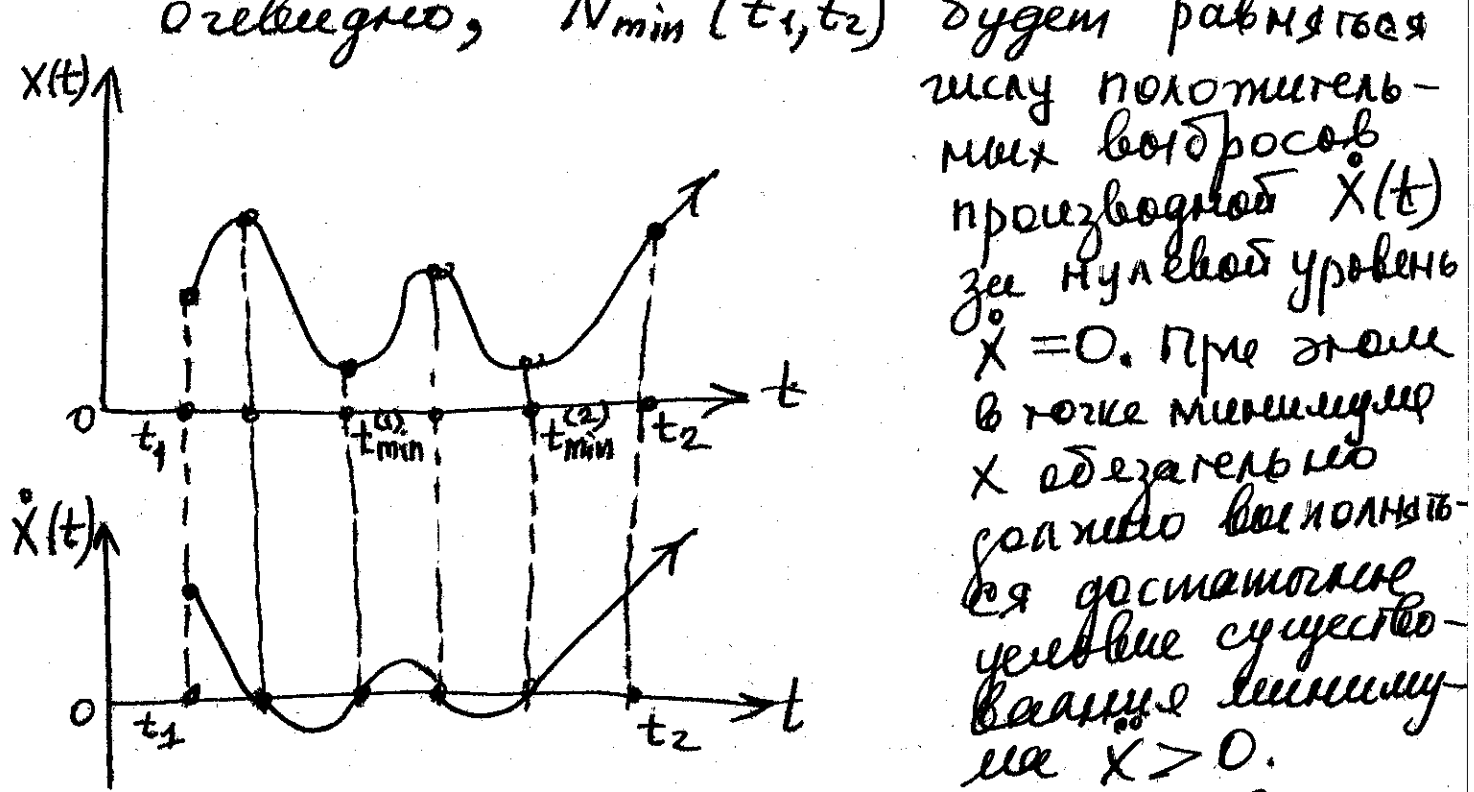 очевидно, N min (t₁,t₂) будет равняться
числу положитель-
ных выбросов
производной Ẋ(t)
за нулевой уровень
Ẋ =0. При этом
в точке минимума
X обязательно
должно выполнять-
ся достаточное
условие существо-
вания миниму-
ма Ẍ > 0.
X(t)
0
t₁
t⁽¹⁾min
t⁽²⁾min
t₂
t
Ẋ(t)
0
t₁
t₂
t